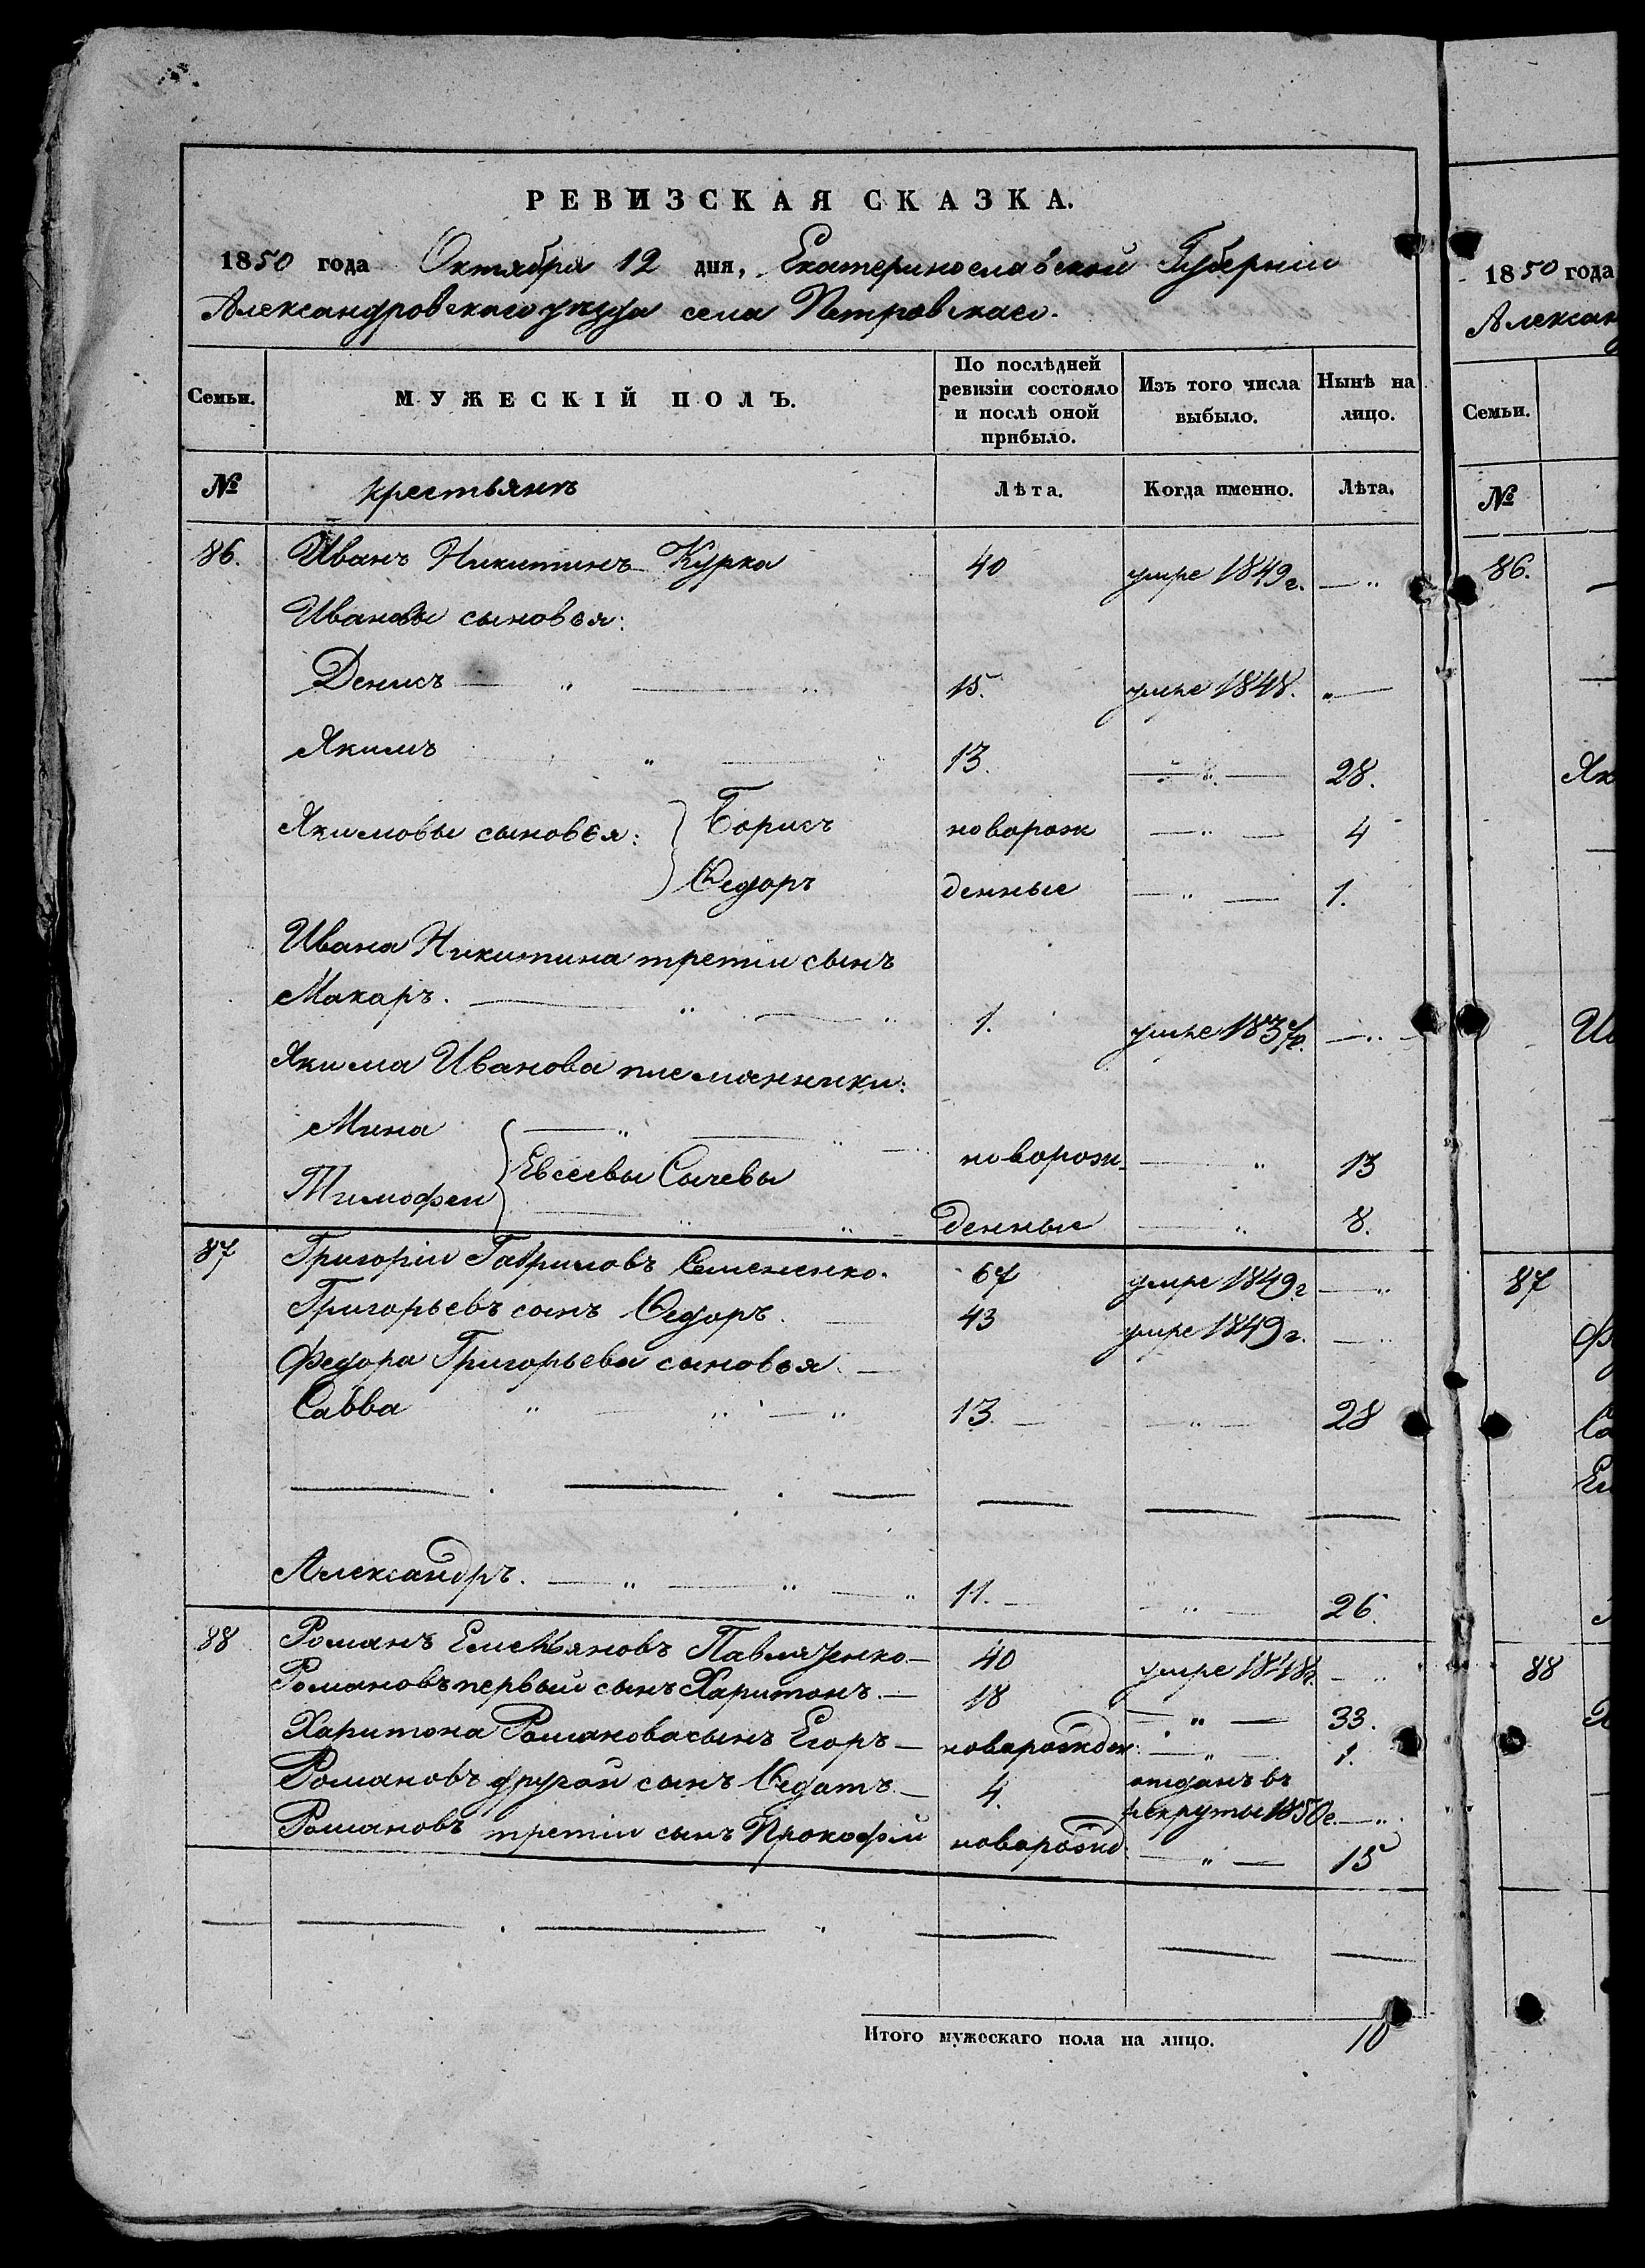 РЕВИЗСКАЯ СКАЗКА.
1850 года Октября 12 дня, Екатеринославской Губернiи
Александровскаго уѣзда села Петровскаго.
Семьи. МУЖЕСКІЙ ПОЛЪ. По послѣдней ревизіи состояло и послѣ оной прибыло. Изъ того числа выбыло. Нынѣ на лицо.
№ крестьянъ Лѣта. Когда именно. Лѣта.
86. Иванъ Никитинъ Курка 40 умре 1849 г. — "
Ивановы сыновья:
Денисъ — " — " 15. умре 1848. " —
Якимъ " — " 13. — " — 28.
Якимовы сыновья: } Борисъ новорож — " — 4
Ѳедоръ денные — " — 1.
Ивана Никитина третiй сынъ
Макаръ. — " — " 1. умре 1837г. — "
Якима Иванова племянники:
Мина — " — " новорож- — " 13
Тимофей } Евсеевы Сычевы денные — " 8.
87 Григорiй Гавриловъ Семененко. 67 умре 1849 г — "
Григорьевъ сынъ Ѳедоръ. — 43 умре 1849 г. — "
Федора Григорьева сыновья. —
Савва " — " — " 13. — — " — 28
Александръ. — " — " — " 11. — — " — 26.
88 Романъ Емельяновъ Павлюченко — 40 умре 1848г. — "
Романовъ первый сынъ Харитонъ. — 18 — " — 33.
Харитона Романова сынъ Егоръ — новорожден. — " — 1.
Романовъ другой сынъ Ѳедотъ — 4. отданъ въ
рекруты 1850 г. — "
Романовъ третiй сынъ Прокофiй новорожд. — " — 15
Итого мужескаго пола на лицо. 10
1850 года
Алексан
Семьи.
№
86.
Як
Ив
87
Фе
Са
88